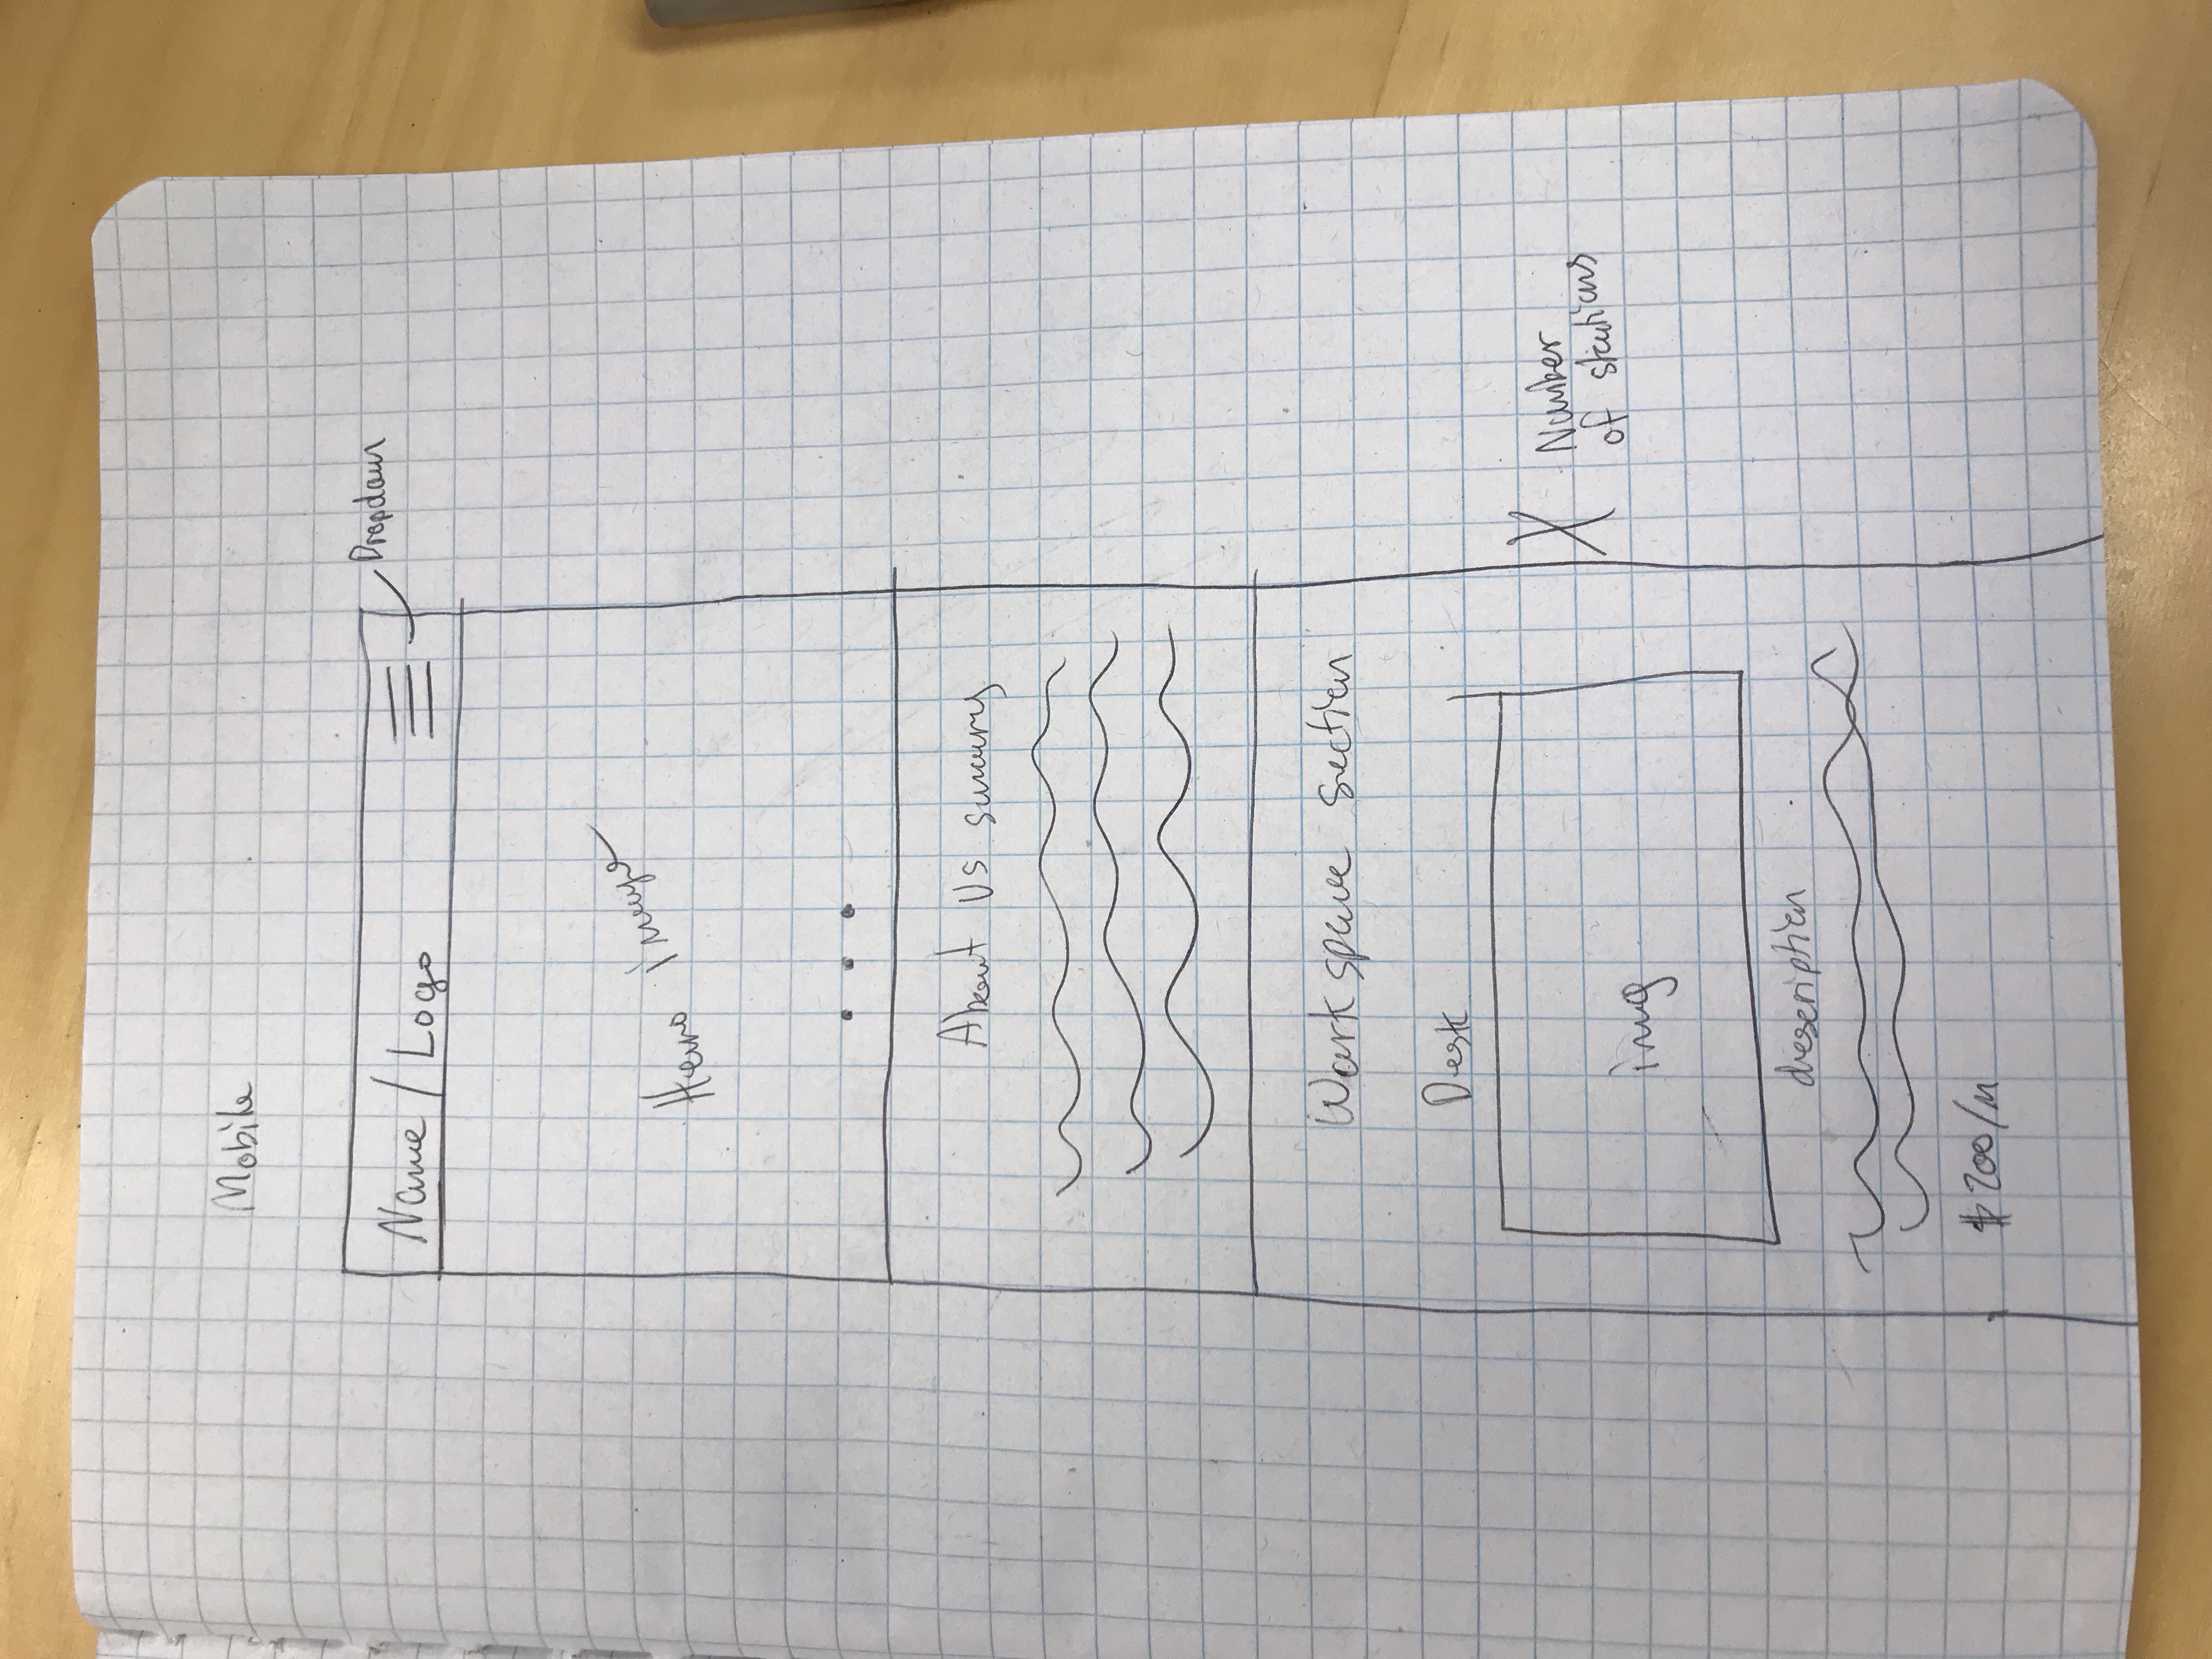 Mobile
Name / Logo
Dropdown
Hero image
About Us summary
Workspace section
Desk
img
X Number
of stations
description
$200/M